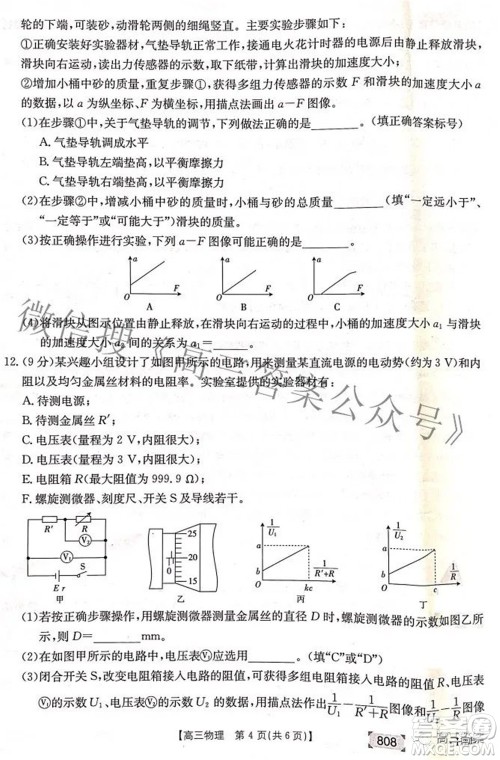 轮的下端,可与砂桶粘接,动滑轮两侧的细绳竖直。主要实验步骤如下:
①正确安装好实验器材,气垫导轨水平,接通电火花计时器的电源后由静止释放滑块,
滑块向右运动,读出力传感器的示数,取下纸带,计算出滑块的加速度大小;
②增加小桶中砂的质量,重复步骤①,获得多组力传感器的示数 F 和滑块的加速度大小 a
的数据,以 a 为纵坐标、F 为横坐标,用描点法画出 a-F 图像。
(1)在步骤①中,关于气垫导轨的调节,下列做法正确的是________。(填正确答案标号)
A. 气垫导轨调成水平
B. 气垫导轨右端垫高,以平衡摩擦力
C. 气垫导轨左端垫高,以平衡摩擦力
(2)在步骤②中,增减小桶中砂的质量时,小桶与砂的总质量________(填“一定远小于”、
“一定等于”或“可能大于”)滑块的质量。
(3)按正确操作进行实验,下列 a-F 图像可能正确的是________。
a a a
O F O F O F
A B C
(4)将滑块从图示位置由静止释放,在滑块向右运动的过程中,小桶的加速度大小 a₁ 与滑
块的加速度大小 a₂ 的关系为________。
12.(9 分)某兴趣小组设计了如图甲所示的电路,用来测量某直流电源的电动势(约为 3 V)和内
阻以及均匀金属丝材料的电阻率。实验室提供的实验器材有:
A. 待测电源;
B. 待测金属丝 R';
C. 电压表(量程为 2 V,内阻很大);
D. 电压表(量程为 3 V,内阻很大);
E. 电阻箱 R(最大阻值为 999.9 Ω);
F. 螺旋测微器、刻度尺、开关 S 及导线若干。
R' R V₂ V₁ E r S 甲
25 20 15 10 乙
1/U₁ b a O kc 1/(R'+R) 丙
1/U₂ b a O c 1/R 丁
(1)若按正确步骤操作,用螺旋测微器测量金属丝的直径 D 时,螺旋测微器的示数如图乙所
示,则 D=________mm。
(2)在如图甲所示的电路中,电压表Ⓥ₁应选用________。(填“C”或“D”)
(3)闭合开关 S,改变电阻箱接入电路的阻值,根据多组电阻箱接入电路的阻值 R、电压表
Ⓥ₁的示数 U₁ 和电压表Ⓥ₂的示数 U₂ 的数据,用描点法作出
【高三物理 第 4 页(共 6 页)】
808
微信搜《高三答案公众号》